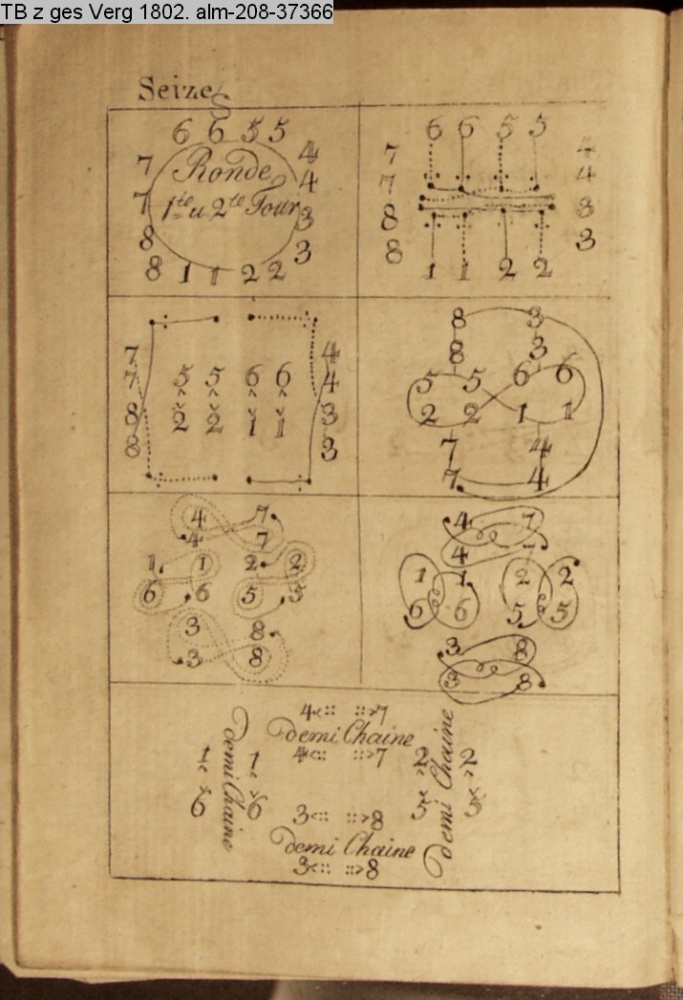 TB z ges Verg 1802. alm-208-37366
Seize
6 6 5 5
7 4
Ronde
4
7 1te u. 2te Tour
3
8 3
8 1 1 2 2
6 6 5 5
7 4
7 4
8 3
8 3
1 1 2 2
7 4
7 5 5 6 6 4
8 2 2 1 1 3
8 3
8 3
8 3
5 5 6 6
2 2 1 1
7 4
7 4
4 7
4 7
1 1 2 2
6 6 5 5
3 8
3 8
4 7
4 7
1 1 2 2
6 6 5 5
3 8
3 8
4<:: ::>7
demi Chaine
4<:: ::>7
1 1
demi Chaine
6 6
2 2
demi Chaine
5 5
3<:: ::>8
demi Chaine
3<:: ::>8